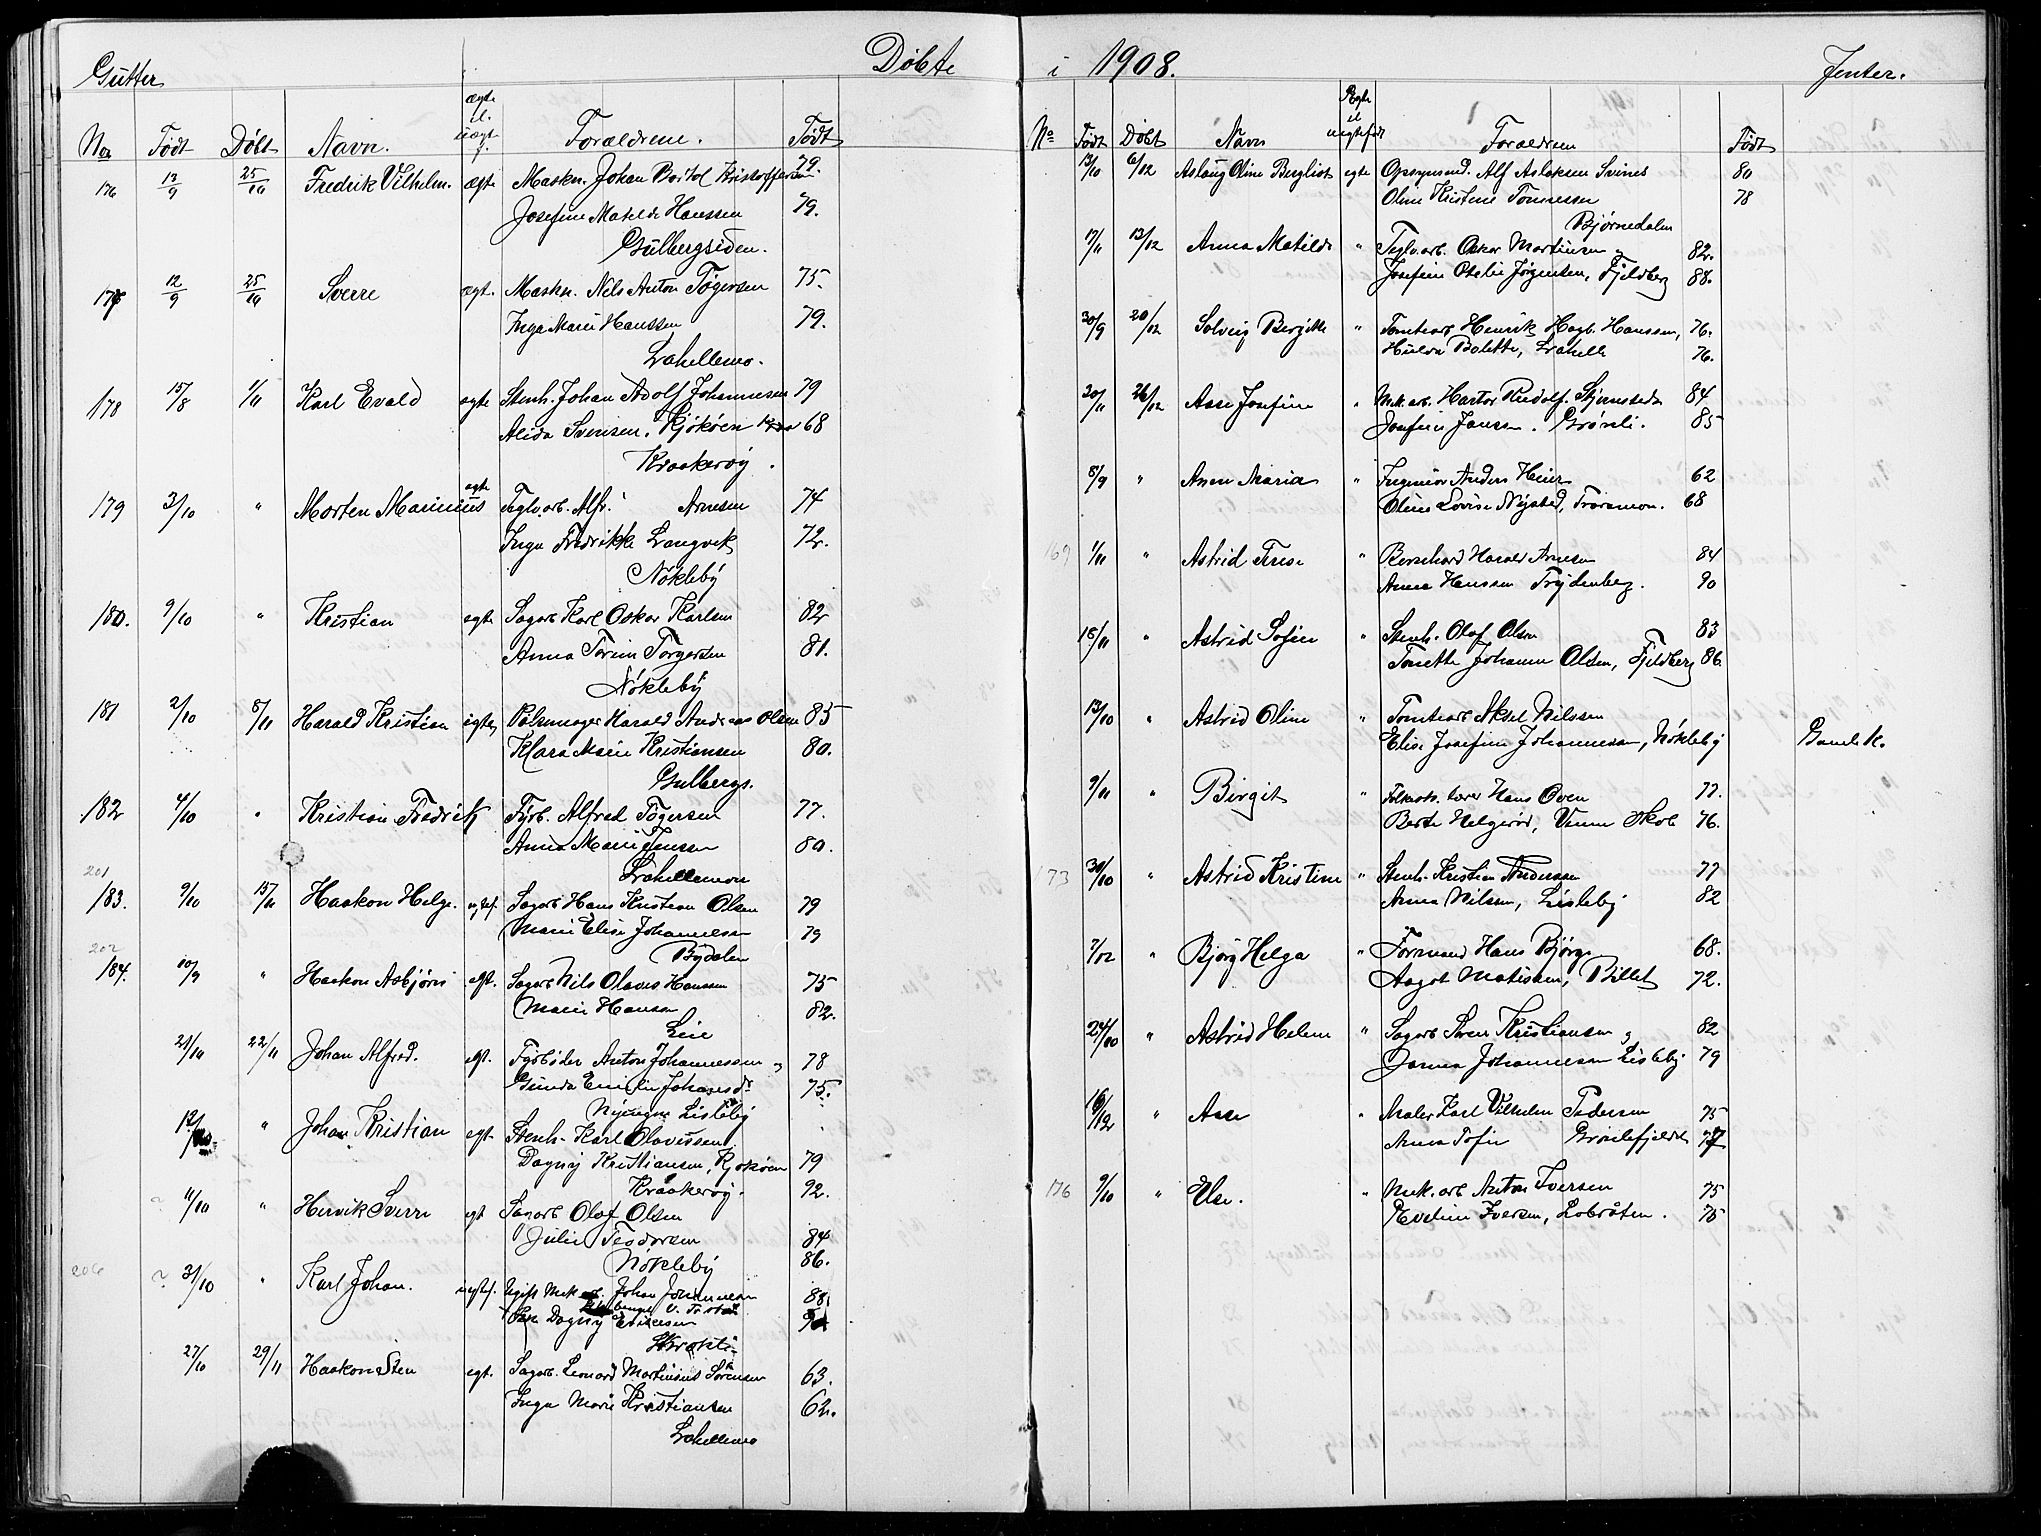 Gutter Døbte
No Født Døbt Navn. ægte el. uægt f. Forældrene. Født
176 13/9 25/10 Fredrik Vilhelm. ægte Maskn. Johan Bertol Kristoffersen 79.
Josefine Matilde Hanssen 79.
Gulbergsiden.
177 12/9 25/10 Sverre ægt. Maskn. Nils Anton Tøgersen 75.
Inga Marie Hanssen 79.
Lahellemo.
178 15/8 1/11 Karl Evald ægte Stenh. Johan Adolf Johannesen 79
Alida Svensen. Kjøkøen 68
Kraakerøy.
179 3/10 " Morten Marinius egte Teglv.arb. Alfr. Arnesen 74
Inga Fredrikke Langvek 72.
Nøkleby
180. 9/10 " Kristian egte Sagarb Karl Oskar Karlsen 82
Anna Torine Torgersen 81.
Nøkleby
181 2/10 8/11 Harald Kristian egte Pølsemager Harald Andreas Olsen 85
Klara Marie Kristiansen 80.
Gulbergs.
182 4/10 " Kristian Fredrik Fyrb. Alfred Tøgersen 77.
Anna Marie Jenssen 80.
Lahellemon
201
183. 9/10 15/11 Haakon Helge. Sagarb Hans Kristian Olsen 79
Marie Elise Johannessen 79
Bydalen
202
184. 10/9 " Haakon Asbjørn egt. Sagarb Nils Olaves Hanssen 75
Marie Hansen 82.
Lie
21/10 22/11 Johan Alfred. egt. Fyrbøder Anton Johannessen 78
Gunda Emilie Johansdr 75.
Lisleby
12/10 " Johan Kristian egt. Stenh. Karl Olavessen
Dagny Kristiansen, Kjøkøen 79
Kraakerøy. 92.
11/10 " Henrik Sverre egt Sagarb Olaf Olsen
Julie Teodorsen 84
Nøkleby 86.
206 31/10 " Karl Johan. uegtef. Ugift Mek arb. Johan Johannesen 88
Dagny Eriksen
27/10 29/11 Haakon Sten egt. Sagarb. Leonard Martinius Sørensen 63.
Inga Marie Kristiansen 62.
Lahellemo
i 1908. Jenter.
No Født Døbt Navn Ægte el uegtefødt Forældrene Født
13/10 6/12 Aslaug Oline Bergliot egte Opsynsmd. Alf Aslaksen Svines 80
Oline Kristine Tomessen 78
Bjørnedalen
17/11 13/12 Anna Matilde " Teglv.arb. Oskar Martinsen 82.
Josefine Otelie Jørgensen, Fjeldberg 88.
30/9 20/12 Solveig Bergitte " Tomtearb Henrik Hagb. Hanssen, 76.
Hulda Bolette, Lahelle 76.
20/11 26/12 Aase Josefine " Mek.arb. Hartor Rudolf Stjernstedt 84
Josefine Jansen. Grønli. 85
8/9 " Anne Maria " Ingeniør Anders Heier 62
Oline Lovise Nystad, Traramon. 68
169 1/11 " Astrid Terese " Bernhard Harald Arnesen 84
Anna Hanssen Trydenberg. 90
18/11 " Astrid Sofie " Stenh. Olaf Olsen 83
Tonette Johanne Olsen, Fjeldberg 86.
13/10 " Astrid Oline " Tomtearb Aksel Nilssen
Elise Josefine Johannessen, Nøkleby Gamle K.
9/11 " Birgit " Folkesk. lærer Hans Oven 77.
Berte Helgerød, Skole 76.
173 31/10 " Astrid Kristine " Stenh. Kristian Andersen 77
Anna Nilssen, Lisleby 82
7/12 " Bjørg Helga " Formand Hans Bjørge 68.
Aagot Matissen, Billet 72.
24/10 " Astrid Helene " Sagarb Søren Kristiansen 82
Johannessen Lisleby 79
16/12 " Aase " Maler Karl Vilhelm Pedersen 75
Anna Sofie Grønlifjeldet 77
176 9/10 " Else. " Mek. arb Anton Iversen 75
Eveline Iversen, Labråten. 75